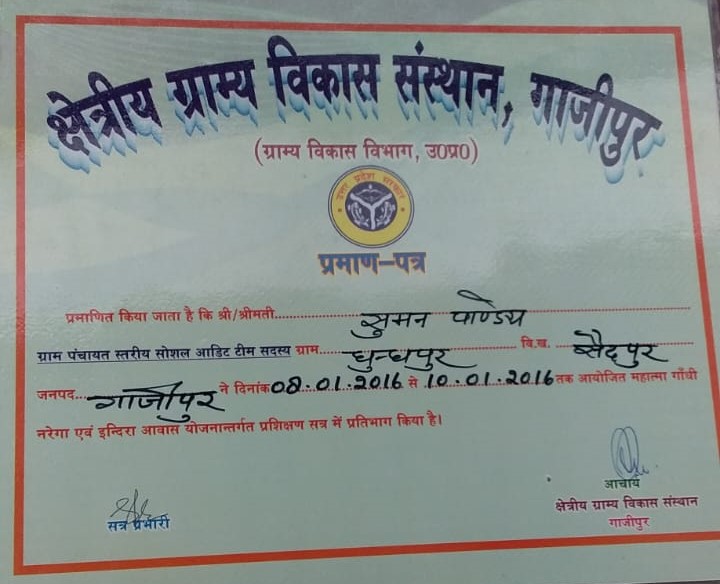 क्षेत्रीय ग्राम्य विकास संस्थान, गाजीपुर
(ग्राम्य विकास विभाग, उ0प्र0)
उत्तर प्रदेश सरकार
प्रमाण-पत्र
प्रमाणित किया जाता है कि श्री/श्रीमती सुमन पाण्डेय
ग्राम पंचायत स्तरीय सोशल आडिट टीम सदस्य ग्राम धुन्धपुर वि.ख. सैदपुर
जनपद गाजीपुर ने दिनांक 08.01.2016 से 10.01.2016 तक आयोजित महात्मा गाँधी
नरेगा एवं इन्दिरा आवास योजनान्तर्गत प्रशिक्षण सत्र में प्रतिभाग किया है।
सत्र प्रभारी
आचार्य
क्षेत्रीय ग्राम्य विकास संस्थान
गाजीपुर